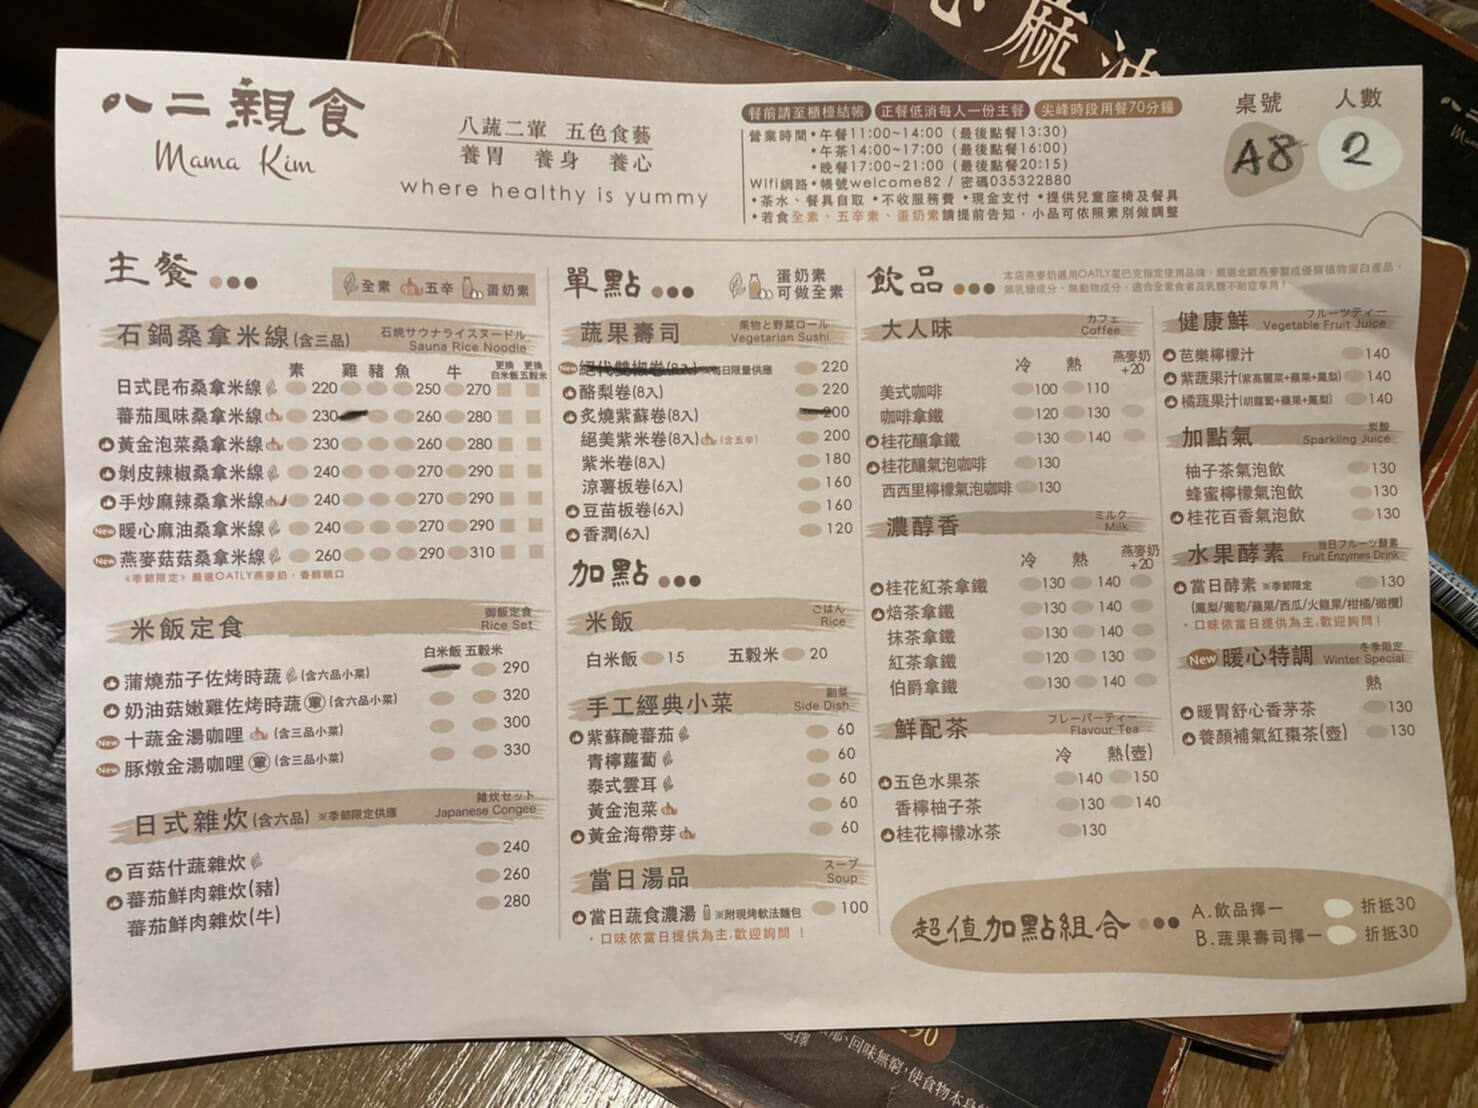 八二親食
Mama Kim
八蔬二葷 五色食藝
養胃 養身 養心
where healthy is yummy
餐前請至櫃檯結帳 正餐低消每人一份主餐 尖峰時段用餐70分鐘
營業時間•午餐11:00~14:00 (最後點餐13:30)
•午茶14:00~17:00 (最後點餐16:00)
•晚餐17:00~21:00 (最後點餐20:15)
Wifi網路•帳號welcome82 / 密碼035322880
•茶水、餐具自取 •不收服務費 •現金支付 •提供兒童座椅及餐具
•若食全素、五辛素、蛋奶素請提前告知,小品可依照素別做調整
桌號 人數
A8 2
主餐
全素 五辛 蛋奶素
石鍋桑拿米線(含三品) 石焼サウナライスヌードル
Sauna Rice Noodle
素 雞 豬 魚 牛 更換白米飯 更換五穀米
日式昆布桑拿米線 220 250 270
蕃茄風味桑拿米線 230 260 280
黃金泡菜桑拿米線 230 260 280
剝皮辣椒桑拿米線 240 270 290
手炒麻辣桑拿米線 240 270 290
New 暖心麻油桑拿米線 240 270 290
New 燕麥菇菇桑拿米線 260 290 310
《季節限定》嚴選OATLY燕麥奶,香醇順口
米飯定食 御飯定食
Rice Set
白米飯 五穀米
蒲燒茄子佐烤時蔬(含六品小菜) 290
奶油菇嫩雞佐烤時蔬 葷 (含六品小菜) 320
New 十蔬金湯咖哩 (含三品小菜) 300
New 豚燉金湯咖哩 葷 (含三品小菜) 330
日式雜炊(含六品) ※季節限定供應 雑炊セット
Japanese Congee
百菇什蔬雜炊 240
蕃茄鮮肉雜炊(豬) 260
蕃茄鮮肉雜炊(牛) 280
單點
蛋奶素
可做全素
蔬果壽司 果物と野菜ロール
Vegetarian Sushi
New 絕代雙椒卷(8入) ※每日限量供應 220
酪梨卷(8入) 220
炙燒紫蘇卷(8入) 200
絕美紫米卷(8入) (含五辛) 200
紫米卷(8入) 180
涼薯板卷(6入) 160
豆苗板卷(6入) 160
香潤(6入) 120
加點
米飯 ごはん
Rice
白米飯 15 五穀米 20
手工經典小菜 副菜
Side Dish
紫蘇醃蕃茄 60
青檸蘿蔔 60
泰式雲耳 60
黃金泡菜 60
黃金海帶芽 60
當日湯品 スープ
Soup
當日蔬食濃湯 ※附現烤軟法麵包 100
•口味依當日提供為主,歡迎詢問!
飲品
本店燕麥奶選用OATLY星巴克指定使用品牌,嚴選北歐燕麥製成優質植物蛋白產品,
無乳糖成分、無動物成分,適合全素食者及乳糖不耐症享用!
大人味 カフェ
Coffee
冷 熱 燕麥奶+20
美式咖啡 100 110
咖啡拿鐵 120 130
桂花釀拿鐵 130 140
桂花釀氣泡咖啡 130
西西里檸檬氣泡咖啡 130
濃醇香 ミルク
Milk
冷 熱 燕麥奶+20
桂花紅茶拿鐵 130 140
焙茶拿鐵 130 140
抹茶拿鐵 130 140
紅茶拿鐵 120 130
伯爵拿鐵 130 140
鮮配茶 フレーバーティー
Flavour Tea
冷 熱(壺)
五色水果茶 140 150
香檸柚子茶 130 140
桂花檸檬冰茶 130
健康鮮 フルーツティー
Vegetable Fruit Juice
芭樂檸檬汁 140
紫蔬果汁(紫高麗菜+蘋果+鳳梨) 140
橘蔬果汁(胡蘿蔔+蘋果+鳳梨) 140
加點氣 炭酸
Sparkling Juice
柚子茶氣泡飲 130
蜂蜜檸檬氣泡飲 130
桂花百香氣泡飲 130
水果酵素 当日フルーツ酵素
Fruit Enzymes Drink
當日酵素 ※季節限定 130
(鳳梨/葡萄/蘋果/西瓜/火龍果/柑橘/橄欖)
•口味依當日提供為主,歡迎詢問!
New 暖心特調 冬季限定
Winter Special
熱
暖胃舒心香茅茶 130
養顏補氣紅棗茶(壺) 130
超值加點組合
A.飲品擇一 折抵30
B.蔬果壽司擇一 折抵30
麻油
290
回味無窮,使食物本身
選擇